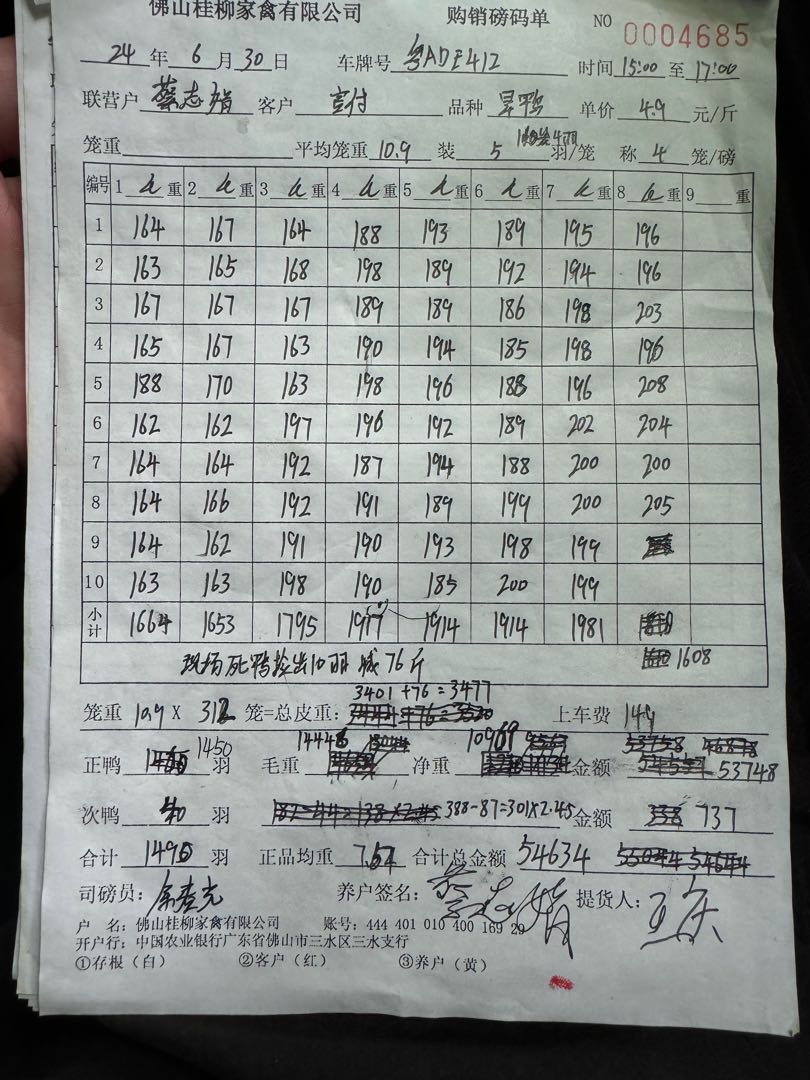 佛山桂柳家禽有限公司 购销磅码单 NO 0004685
24 年 6 月 30 日 车牌号 412 时间 15:00 至 17:00
联营户 蔡志娟 客户 品种 单价 4.9 元/斤
笼重 平均笼重 10.9 装 5 羽/笼 称 4 笼/磅
编号 1 重 2 重 3 重 4 重 5 重 6 重 7 重 8 重 9 重
1 164 167 164 188 193 189 195 196
2 163 165 168 198 189 192 194 196
3 167 167 167 189 189 186 198 203
4 165 167 163 190 194 185 198 196
5 188 170 163 198 196 188 196 208
6 162 162 197 196 192 189 202 204
7 164 164 192 187 194 188 200 200
8 164 166 192 191 189 199 200 205
9 164 162 191 190 193 198 199
10 163 163 198 190 185 200 199
小计 1664 1653 1795 1917 1914 1914 1981
1608
现场死鸭捡出10羽减76斤
3401+76=3477
笼重 10.9 X 312 笼=总皮重: 上车费 149
正鸭 1450 羽 毛重 14446 净重 10969 金额 53748
次鸭 40 羽 388-87=301×2.45 金额 737
合计 1490 羽 正品均重 7.57 合计总金额 54634
司磅员: 养户签名: 蔡志娟 提货人:
户 名: 佛山桂柳家禽有限公司 账号: 444 401 010 400 169 29
开户行: 中国农业银行广东省佛山市三水区三水支行
①存根(白) ②客户(红) ③养户(黄)